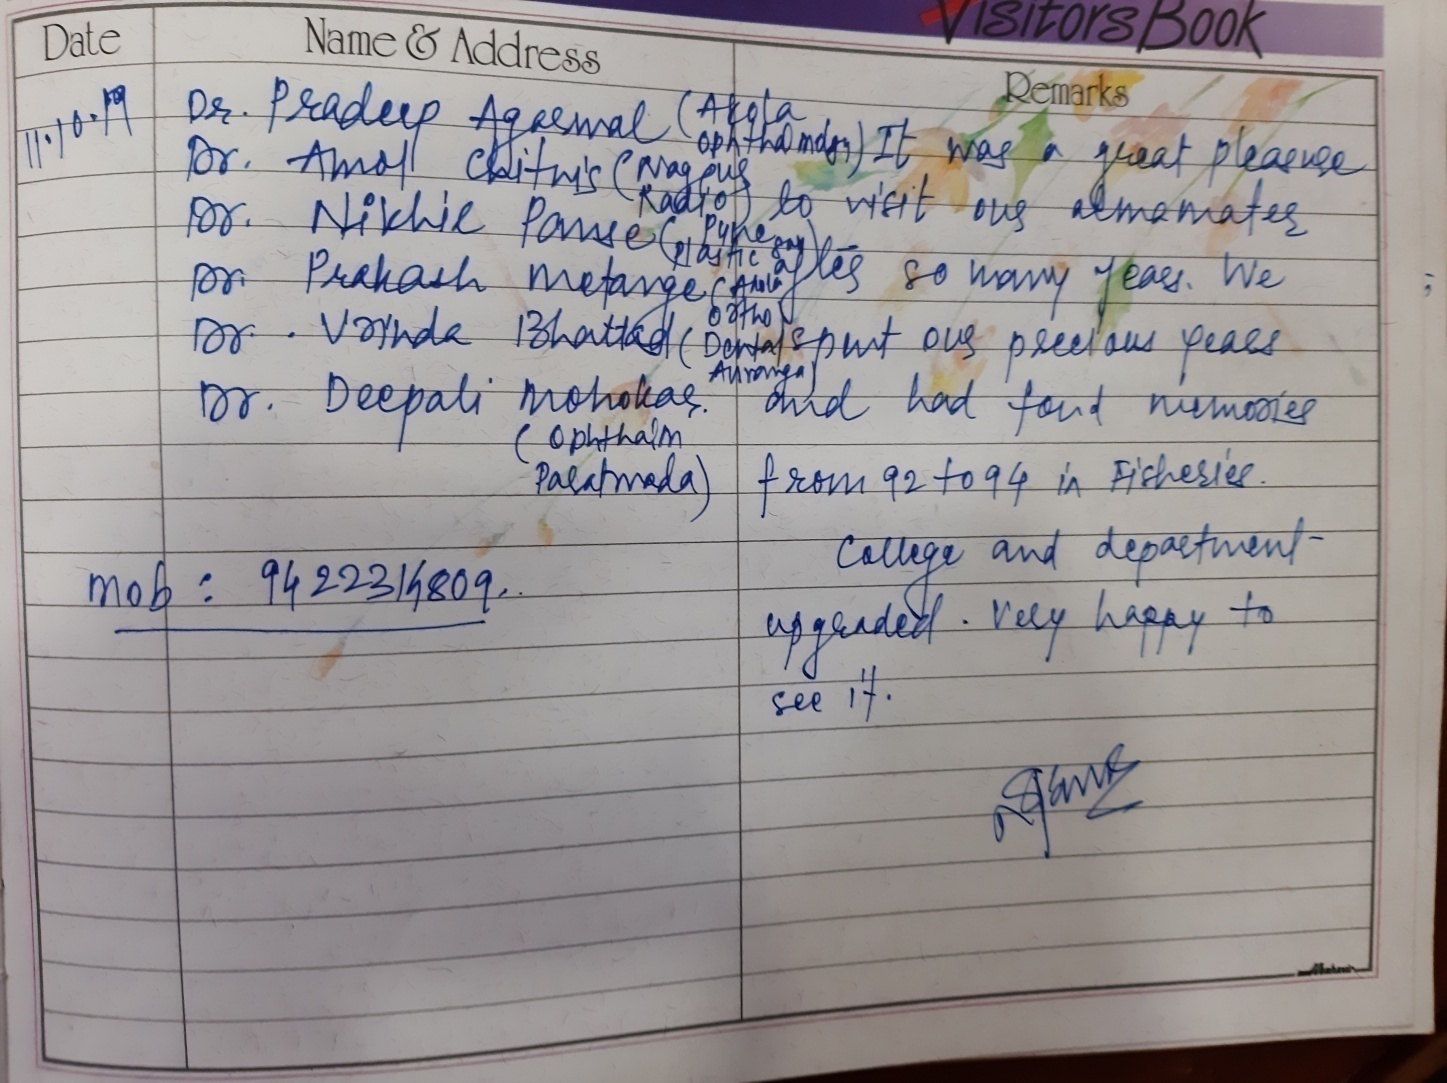 Visitors Book
Date Name & Address Remarks
11.10.19
Dr. Pradeep Agrawal (Akola
Ophthalmology)
Dr. Amol Chitnis (Nagpur
Radio)
Dr. Nikhil Panse (Pune
Plastic
Dr. Prakash Metange (Akola
Ortho)
Dr. Vrinda Bhattad (Dental
Auranga)
Dr. Deepali Mohokar.
(Ophthalm
Paratwada)
mob : 9422314809..
It was a great pleasure
to visit our almamater
after so many years. We
spent our precious years
and had fond memories
from 92 to 94 in Fisheries.
College and department
upgraded. Very happy to
see it.